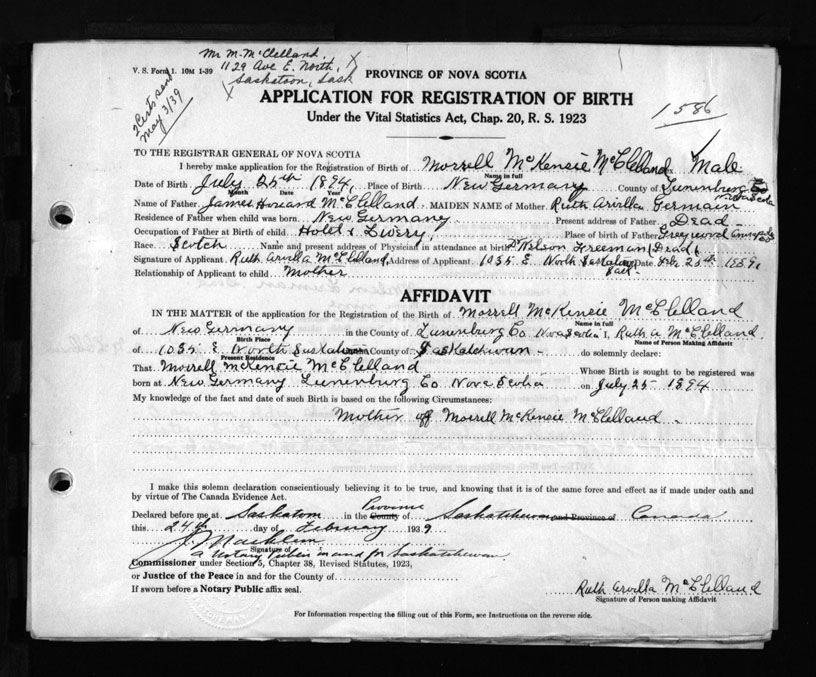 Mr M. McClelland
V. S. Form 1. 10M 1-39
1129 Ave E. North,
Saskatoon, Sask
PROVINCE OF NOVA SCOTIA
May 3/39
APPLICATION FOR REGISTRATION OF BIRTH
1586
Under the Vital Statistics Act, Chap. 20, R. S. 1923
TO THE REGISTRAR GENERAL OF NOVA SCOTIA
I hereby make application for the Registration of Birth of Morrell McKensie McClelland Male
Name in full
Date of Birth July 25th 1894, Place of Birth New Germany County of Lunenburg Co
Month Date Year
Name of Father James Howard McClelland MAIDEN NAME of Mother Ruth Arvilla Germain
Residence of Father when child was born New Germany Present address of Father Dead
Occupation of Father at Birth of child Hotel & Livery, Place of birth of Father Greywood Annapolis Co
Race Scotch Name and present address of Physician in attendance at birth Dr Nelson Freeman (Dead)
Signature of Applicant Ruth Arvilla McClelland, Address of Applicant 1035 E North Saskatoon Sask Date Feb 25th 1939
Relationship of Applicant to child Mother
AFFIDAVIT
IN THE MATTER of the application for the Registration of the Birth of Morrell McKensie McClelland
Name in full
of New Germany in the County of Lunenburg Co Nova Scotia I, Ruth A McClelland
Birth Place Name of Person making Affidavit
of 1035 E North Saskatoon County of Saskatchewan do solemnly declare:
Present Residence
That Morrell McKenzie McClelland Whose Birth is sought to be registered was
born at New Germany Lunenburg Co Nova Scotia on July 25 1894
My knowledge of the fact and date of such Birth is based on the following Circumstances:
Mother off Morrell McKensie McClelland
I make this solemn declaration conscientiously believing it to be true, and knowing that it is of the same force and effect as if made under oath and
by virtue of The Canada Evidence Act.
Declared before me at Saskatoon in the Province County of Saskatchewan and Province of Canada
this 24th day of February 1939
J. Macklem
Signature of
a Notary Public in and for Saskatchewan
Commissioner under Section 5, Chapter 38, Revised Statutes, 1923,
or Justice of the Peace in and for the County of
If sworn before a Notary Public affix seal.
Ruth Arvilla McClelland
Signature of Person making Affidavit
For Information respecting the filling out of this Form, see Instructions on the reverse side.